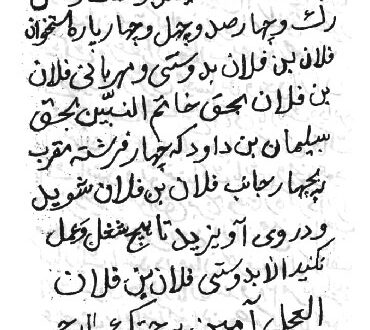 رك و چهار صد و چهل و چهار پاره استخوان
فلان بن فلان بدوستی و مهربانی فلان
بن فلان بحق خاتم النبیّین بحق
سلیمان بن داود که چهار فرشته مقرب
بچهار جانب فلان بن فلان شوید
و در وی آویزید تا هیچ شغل و عمل
نکنید الا بدوستی فلان بن فلان
العجل آمین